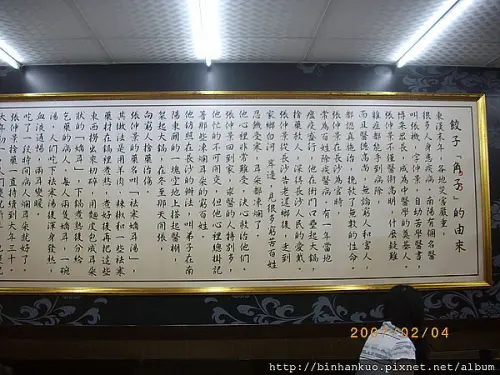 餃子「角子」的由來
東漢末年,各地災害嚴重,
很多人身患疾病。南陽有個名醫
叫張機,字仲景,自幼苦學醫書,
博采眾長,成為中醫學的奠基人。
張仲景不僅醫術高明,什麼疑難
雜症都能手到病除,
而且醫德高尚,無論窮人和富人,
都認真施治,挽救了無數的性命
張仲景在長沙為官時,
常為百姓除疾醫病。有一年當地
瘟疫盛行,他在衙門口壘起大鍋,
捨藥救人,深得長沙人民的愛戴。
張仲景從長沙告老還鄉後,走到
家鄉白河岸邊,見很多窮苦百姓
忍飢受寒,耳朵都凍爛了。
他心裡非常難受,決心救治他們
張仲景回到家,求醫的人特別多,
他忙的不可開交,但他心裡總掛記
著那些凍爛耳朵的窮百姓。
他仿照在長沙的辦法,叫弟子在南
陽東關的一塊空地上搭起醫棚,
架起大鍋,在冬至那天開張,
向窮人捨藥治傷。
張仲景的藥名叫「祛寒嬌耳湯」
其做法是用羊肉、辣椒和一些祛寒
藥材在鍋裡煮熬,煮好後再把這些
東西撈出來切碎,用麵皮包成耳朵
狀的「嬌耳」,下鍋煮熟後分給
乞藥的病人。每人兩隻嬌耳,一碗
湯。人們吃下祛寒湯後渾身發熱,
血液通暢,兩耳變暖。
張仲景捨藥一直持續到大年三十
2007/02/04
http://binhankuo.pixnet.net/album